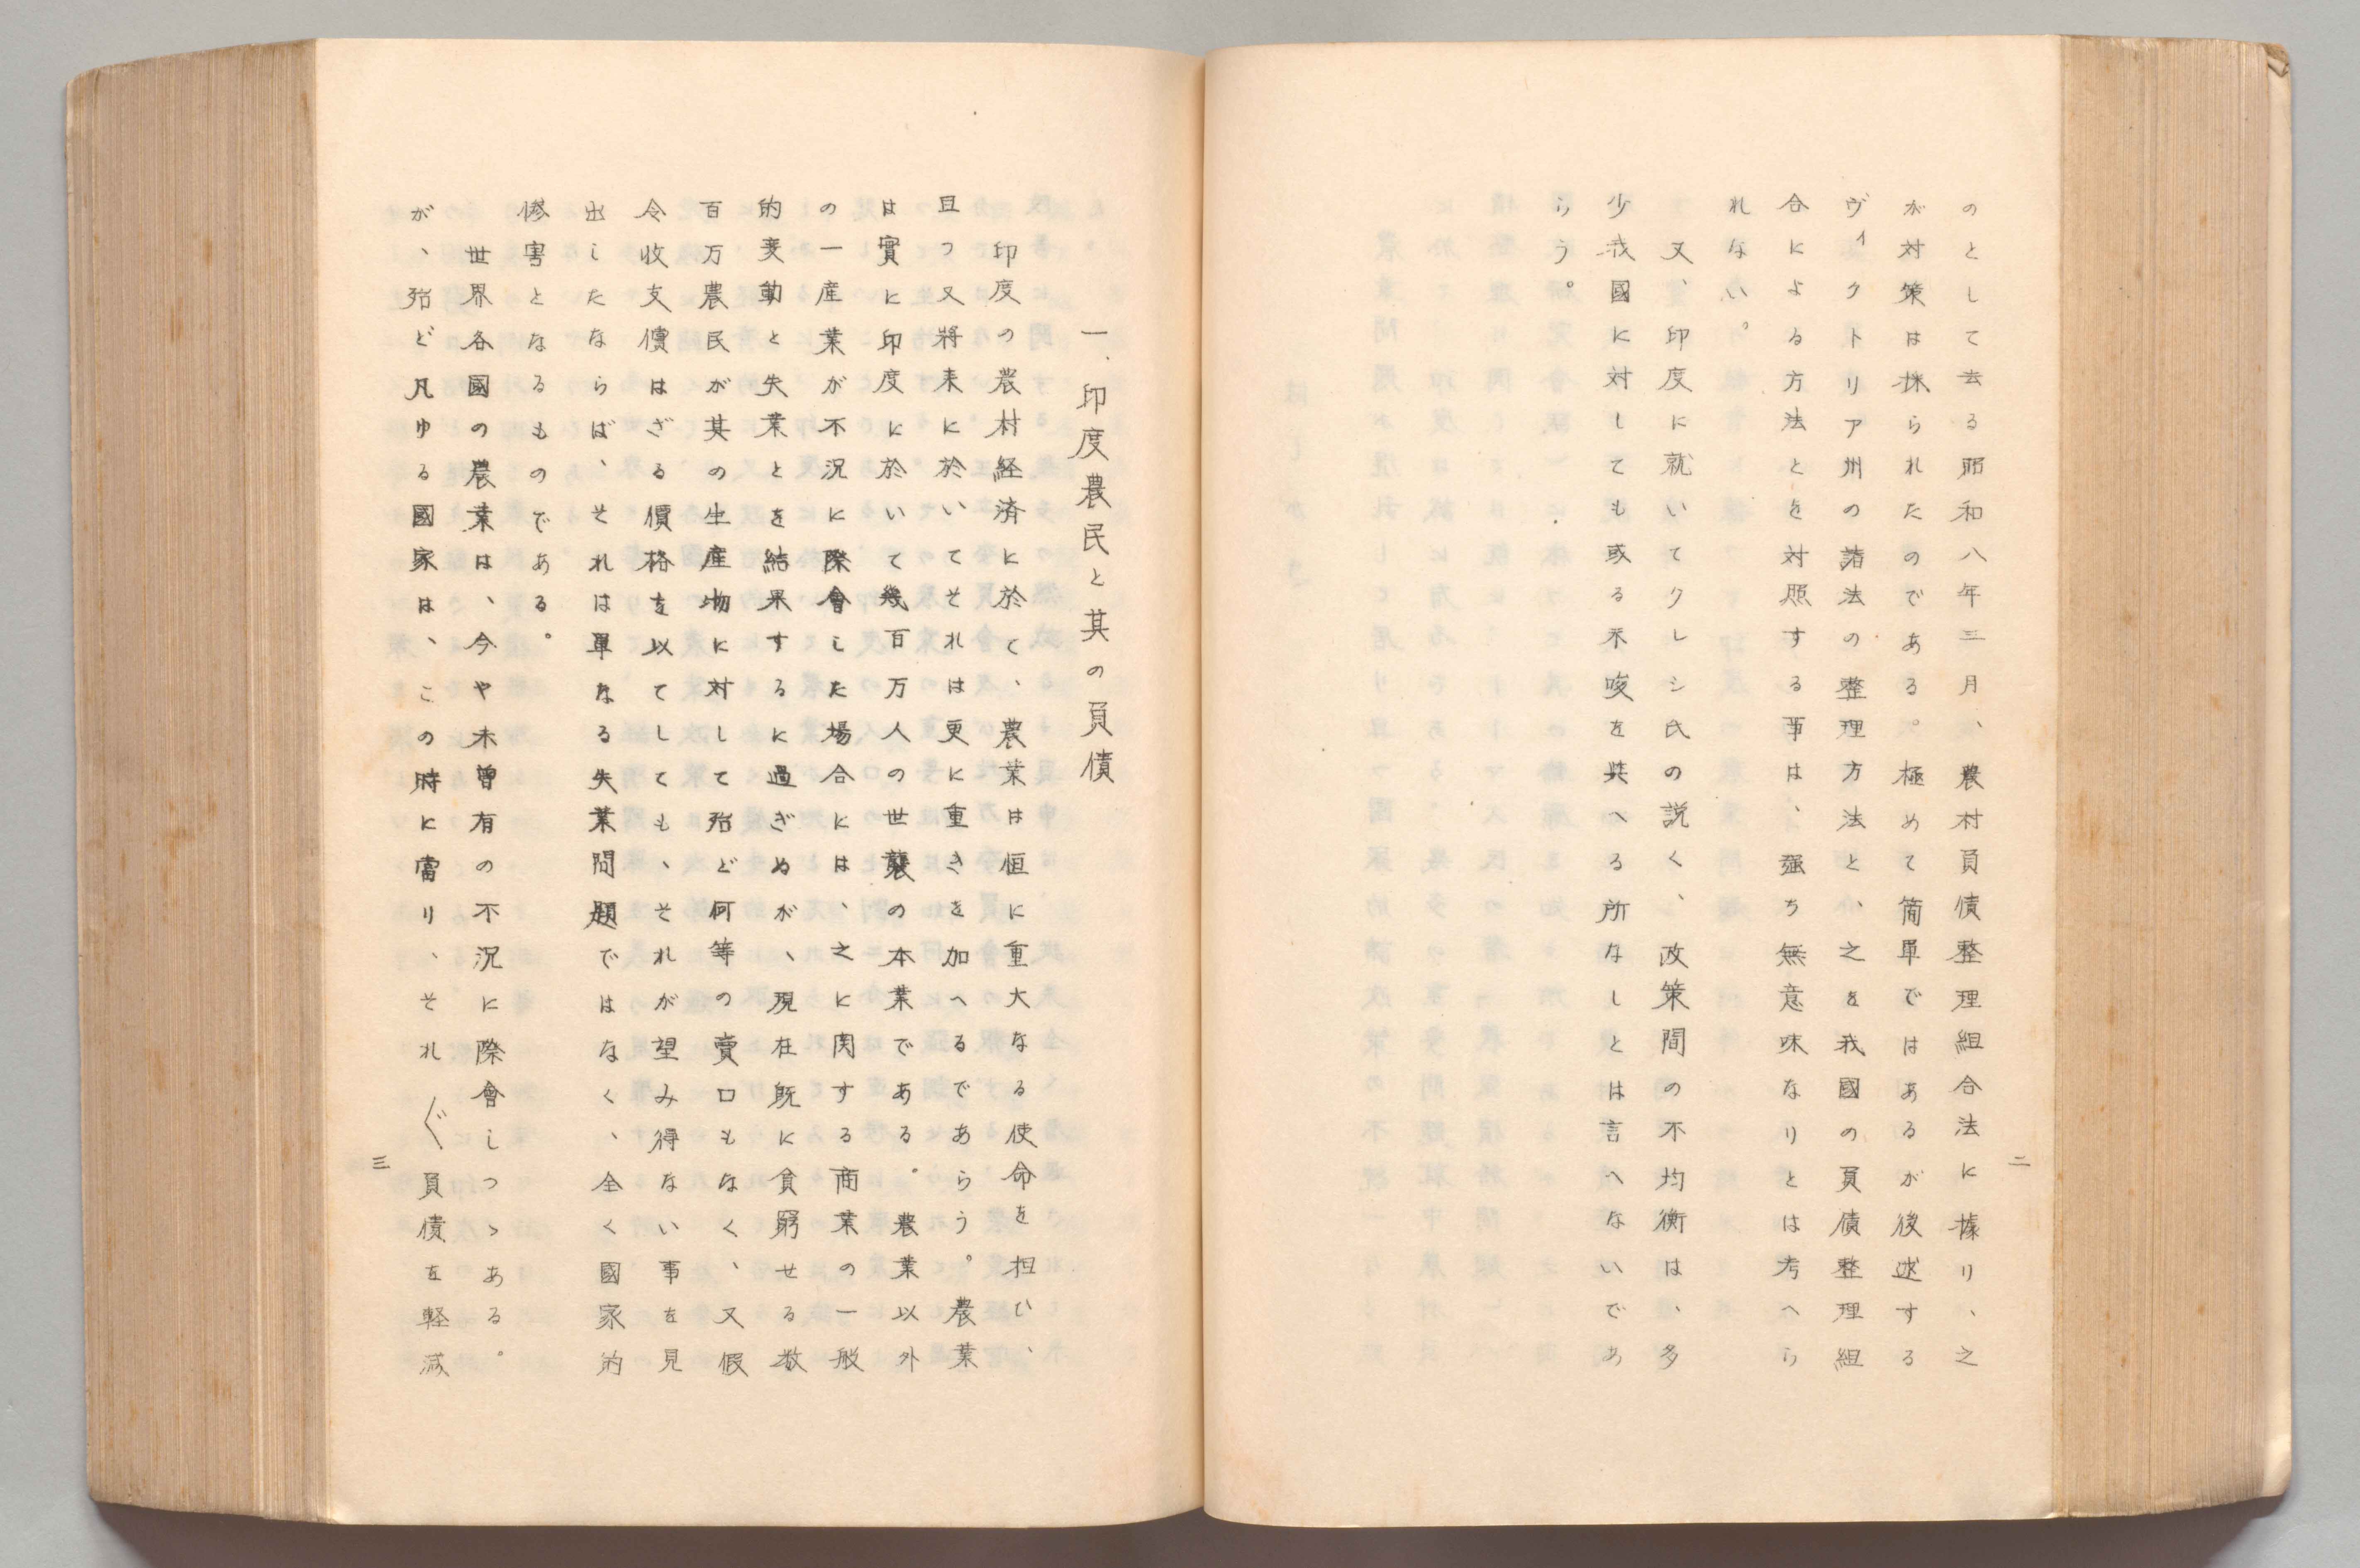 のとして去る昭和八年三月、農村負債整理組合法に據り、之
が対策は採られたのである。極めて簡単ではあるが後述する
ヴィクトリア州の諸法の整理方法と、之を我國の負債整理組
合による方法とを対照する事は、强ち無意味なりとは考へら
れない。
又、印度に就いてクレシ氏の説く、政策間の不均衡は、多
少我國に対しても或る示唆を與へる所なしとは言へないであ
らう。
二
一、印度農民と其の負債
印度の農村経済に於て、農業は恒に重大なる使命を担ひ、
且つ又將来に於いてそれは更に重きを加へるであらう。農業
は實に印度に於いて幾百万人の世襲の本業である。農業以外
の一産業が不況に際會した場合には、之に関する商業の一般
的変動と失業とを結果するに過ぎぬが、現在既に貧窮せる数
百万農民が其の生産物に対して殆ど何等の賣口もなく、又假
令收支償はざる價格を以てしても、それが望み得ない事を見
出したならば、それは単なる失業問題ではなく、全く國家的
惨害となるものである。
世界各國の農業は、今や未曽有の不況に際會しつゝある。
が、殆ど凡ゆる國家は、この時に當り、それ〲負債を軽減
三